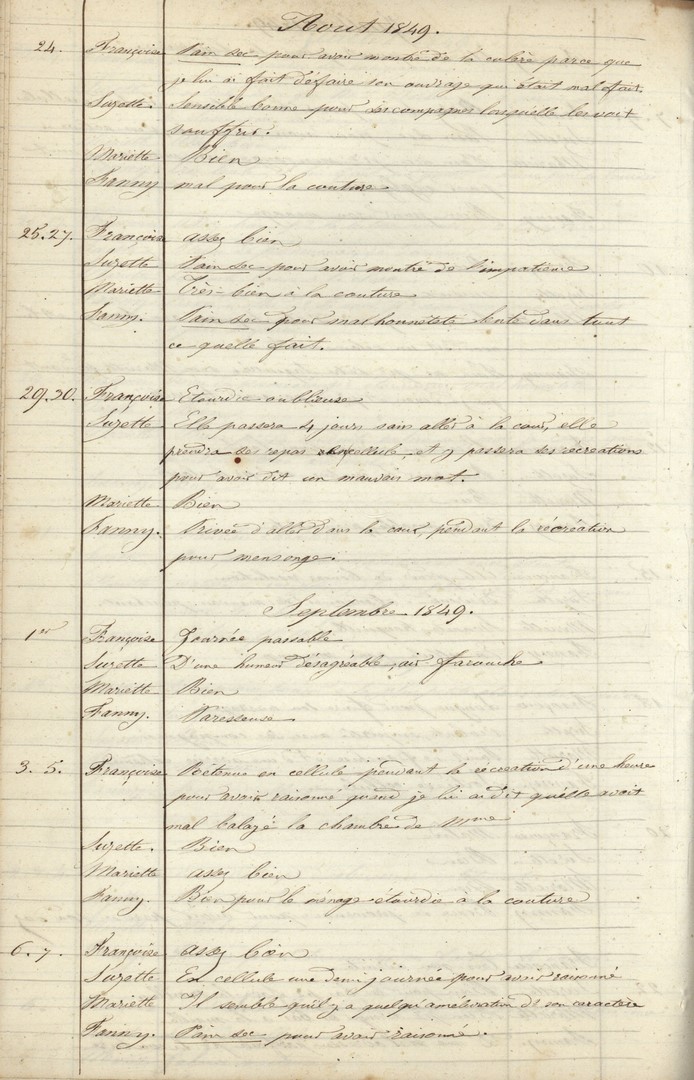 Aout 1849.
24. Françoise Pain sec pour avoir montré de la colère parce que
je lui ai fait défaire son ouvrage qui était mal fait.
Suzette. Sensible bonne pour ses compagnes lorsquelle les voit
souffrir.
Mariette Bien
Fanny mal pour la couture
25.27. Françoise assez bien
Suzette Pain sec pour avoir montré de l'impatience
Mariette Très-bien à la couture
Fanny. Pain sec pour malhonnêteté lente dans tout
ce quelle fait.
29.30. Françoise Etourdie oublieuse
Suzette Elle passera 4 jours sans aller à la cour, elle
prendra ses repas en cellule, et y passera ses récréations
pour avoir dit un mauvais mot.
Mariette Bien
Fanny. Privée d'aller dans la cour, pendant la récréation
pour mensonge.
Septembre 1849.
1er Françoise Journée passable
Suzette D'une humeur désagréable, air farouche
Mariette Bien
Fanny. Paresseuse.
3. 5. Françoise Retenue en cellule pendant la récréation d'une heure
pour avoir raisonné quand je lui ai dit qu'elle avait
mal balayé la chambre de Mme
Suzette. Bien
Mariette assez bien
Fanny. Bien pour le ménage étourdie à la couture
6. 7. Françoise assez bien
Suzette En cellule une demi journée pour avoir raisonné
Mariette Il semble qu'il y a quelqu'amélioration de son caractère
Fanny. Pain sec pour avoir raisonné.